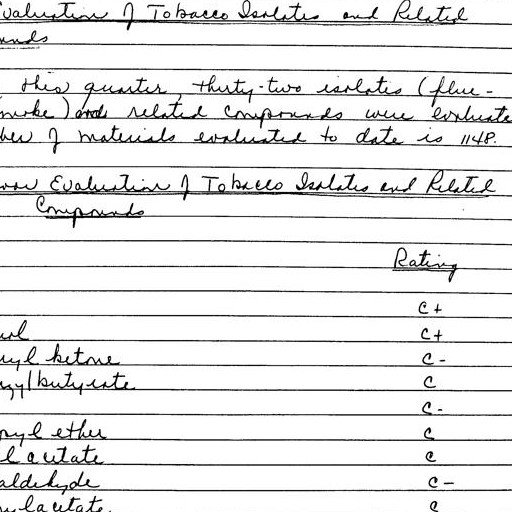 Evaluation of Tobacco Isolates and Related
this quarter, thirty-two isolates (flue-
smoke) and related compounds were evaluate
of materials evaluated to date is 1148.
Evaluation of Tobacco Isolates and Related
Compounds
Rating
C+
C+
ketone C-
butyrate C
C-
ether C
acetate C
aldehyde C-
acetate C